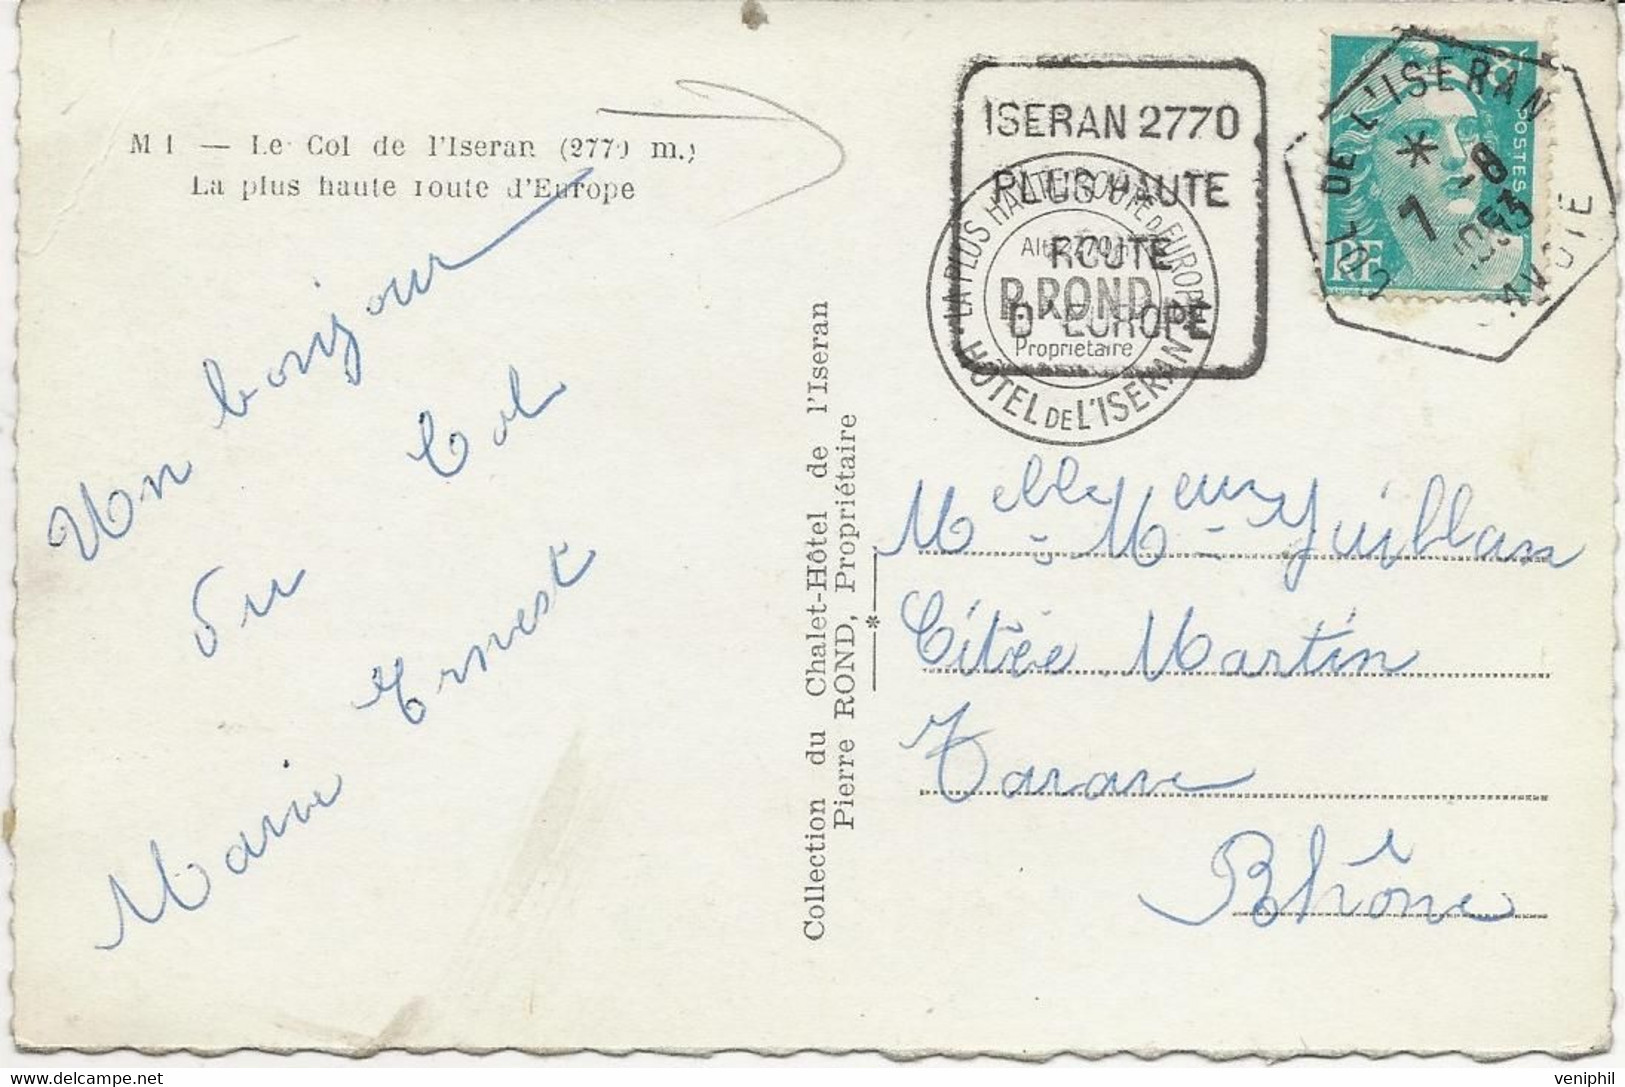 M 1 — Le Col de l'Iseran (2770 m.)
La plus haute route d'Europe
Un bonjour
du Col
Marie Ernest
Collection du Chalet-Hôtel de l'Iseran
Pierre ROND, Propriétaire
ISERAN 2770
PLUS HAUTE
ROUTE
D'EUROPE
LA PLUS HAUTE ROUTE D'EUROPE
Alt. 2770 m
P. ROND
Proprietaire
HÔTEL DE L'ISERAN
COL DE L'ISERAN
* 7 -8
1953
SAVOIE
POSTES
RF
8F
Melle - Meur Guillan
Citée Martin
Tarare
Rhône
veniphil